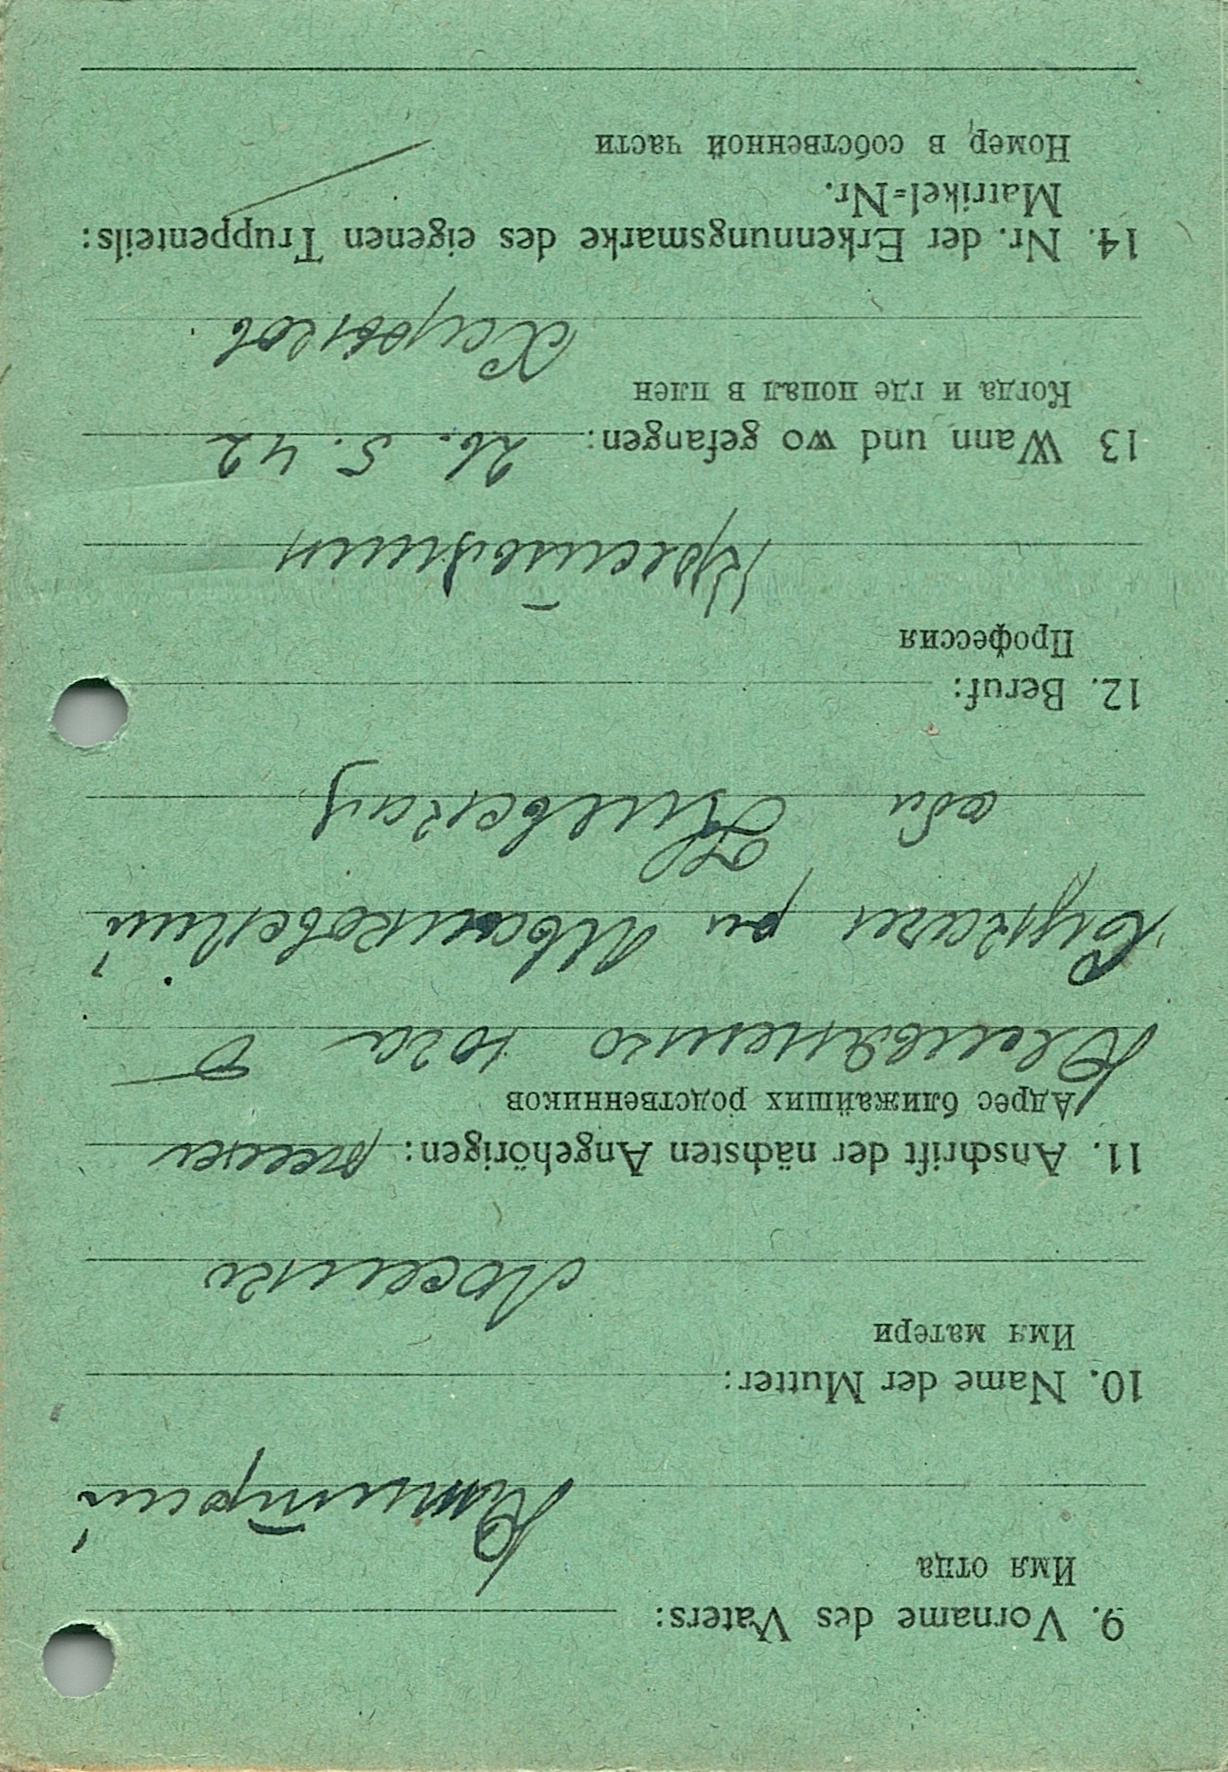 9. Vorname des Vaters:
Имя отца
Дмитрий
10. Name der Mutter:
Имя матери
11. Anschrift der nächsten Angehörigen: жена
Адрес ближайших родственников
Емельяненко
Иванковский
обл Киевская
12. Beruf:
Профессия
Крестьянин
13 Wann und wo gefangen: 26. 5. 42
Когда и где попал в плен
Харьков
14. Nr. der Erkennungsmarke des eigenen Truppenteils:
Matrikel=Nr.
Номер в собственной части